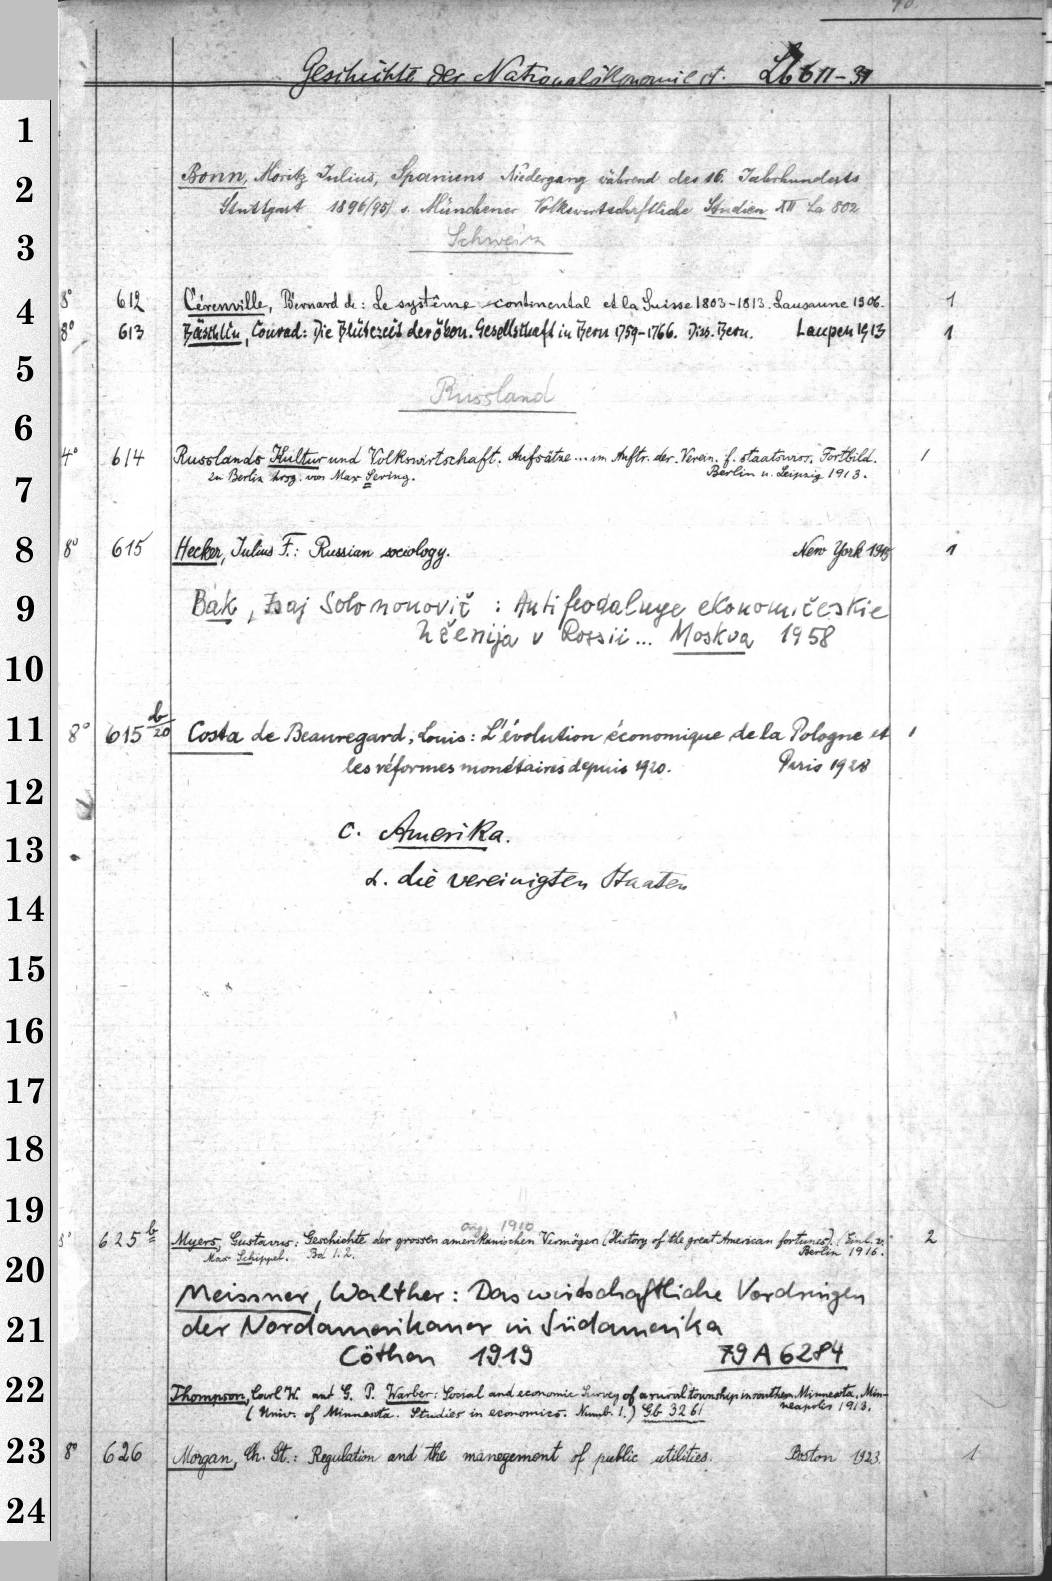 Geschichte der Nationalökonomie
1
2
Bonn, Moritz Julius, Spaniens Niedergang während des 16. Jahrhunderts
Stuttgart 1896 s. Münchener Volkswirtschaftliche Studien XII La 802
3
Schweiz
8° 612 Cérenville, Bernard de: Le système continental et la Suisse 1803-1813. Lausanne 1906. 1
4
8° 613 Bäschlin, Conrad: Die Blütezeit der ökon. Gesellschaft in Bern 1759-1766. Diss. Bern. Laupen 1913 1
5
Russland
6
4° 614 Russlands Kultur und Volkswirtschaft. Aufsätze... im Auftr. der Verein. f. staatswiss. Fortbild. 1
zu Berlin hrsg. von Max Sering. Berlin u. Leipzig 1913.
7
8
8° 615 Hecker, Julius F.: Russian sociology. New York 1915 1
9
Bak, Isaj Solomonovič : Antifeodalnye ekonomičeskie
učenija v Rossii... Moskva 1958
10
11
8° 615 b/20 Costa de Beauregard, Louis: L'évolution économique de la Pologne et 1
les réformes monétaires depuis 1920. Paris 1928
12
C. Amerika.
13
α. die vereinigten Staaten
14
15
16
17
18
19
orig. 1910
8° 625 b Myers, Gustavus: Geschichte der grossen amerikanischen Vermögen (History of the great American fortunes). (Einl. v. 2
Max Schippel. Bd 1. 2. Berlin 1916.
20
Meissner, Walther: Das wirtschaftliche Vordringen
21
der Nordamerikaner in Südamerika
Cöthen 1919 79 A 6284
22
Thompson, Carl W. and G. P. Warber: Social and economic Survey of a rural township in southern Minnesota. Min-
(Univ. of Minnesota. Studies in economics. Numb. 1.) Gb 3261 neapolis 1913.
23
8° 626 Morgan, Ch. St.: Regulation and the manegement of public utilities. Boston 1923. 1
24